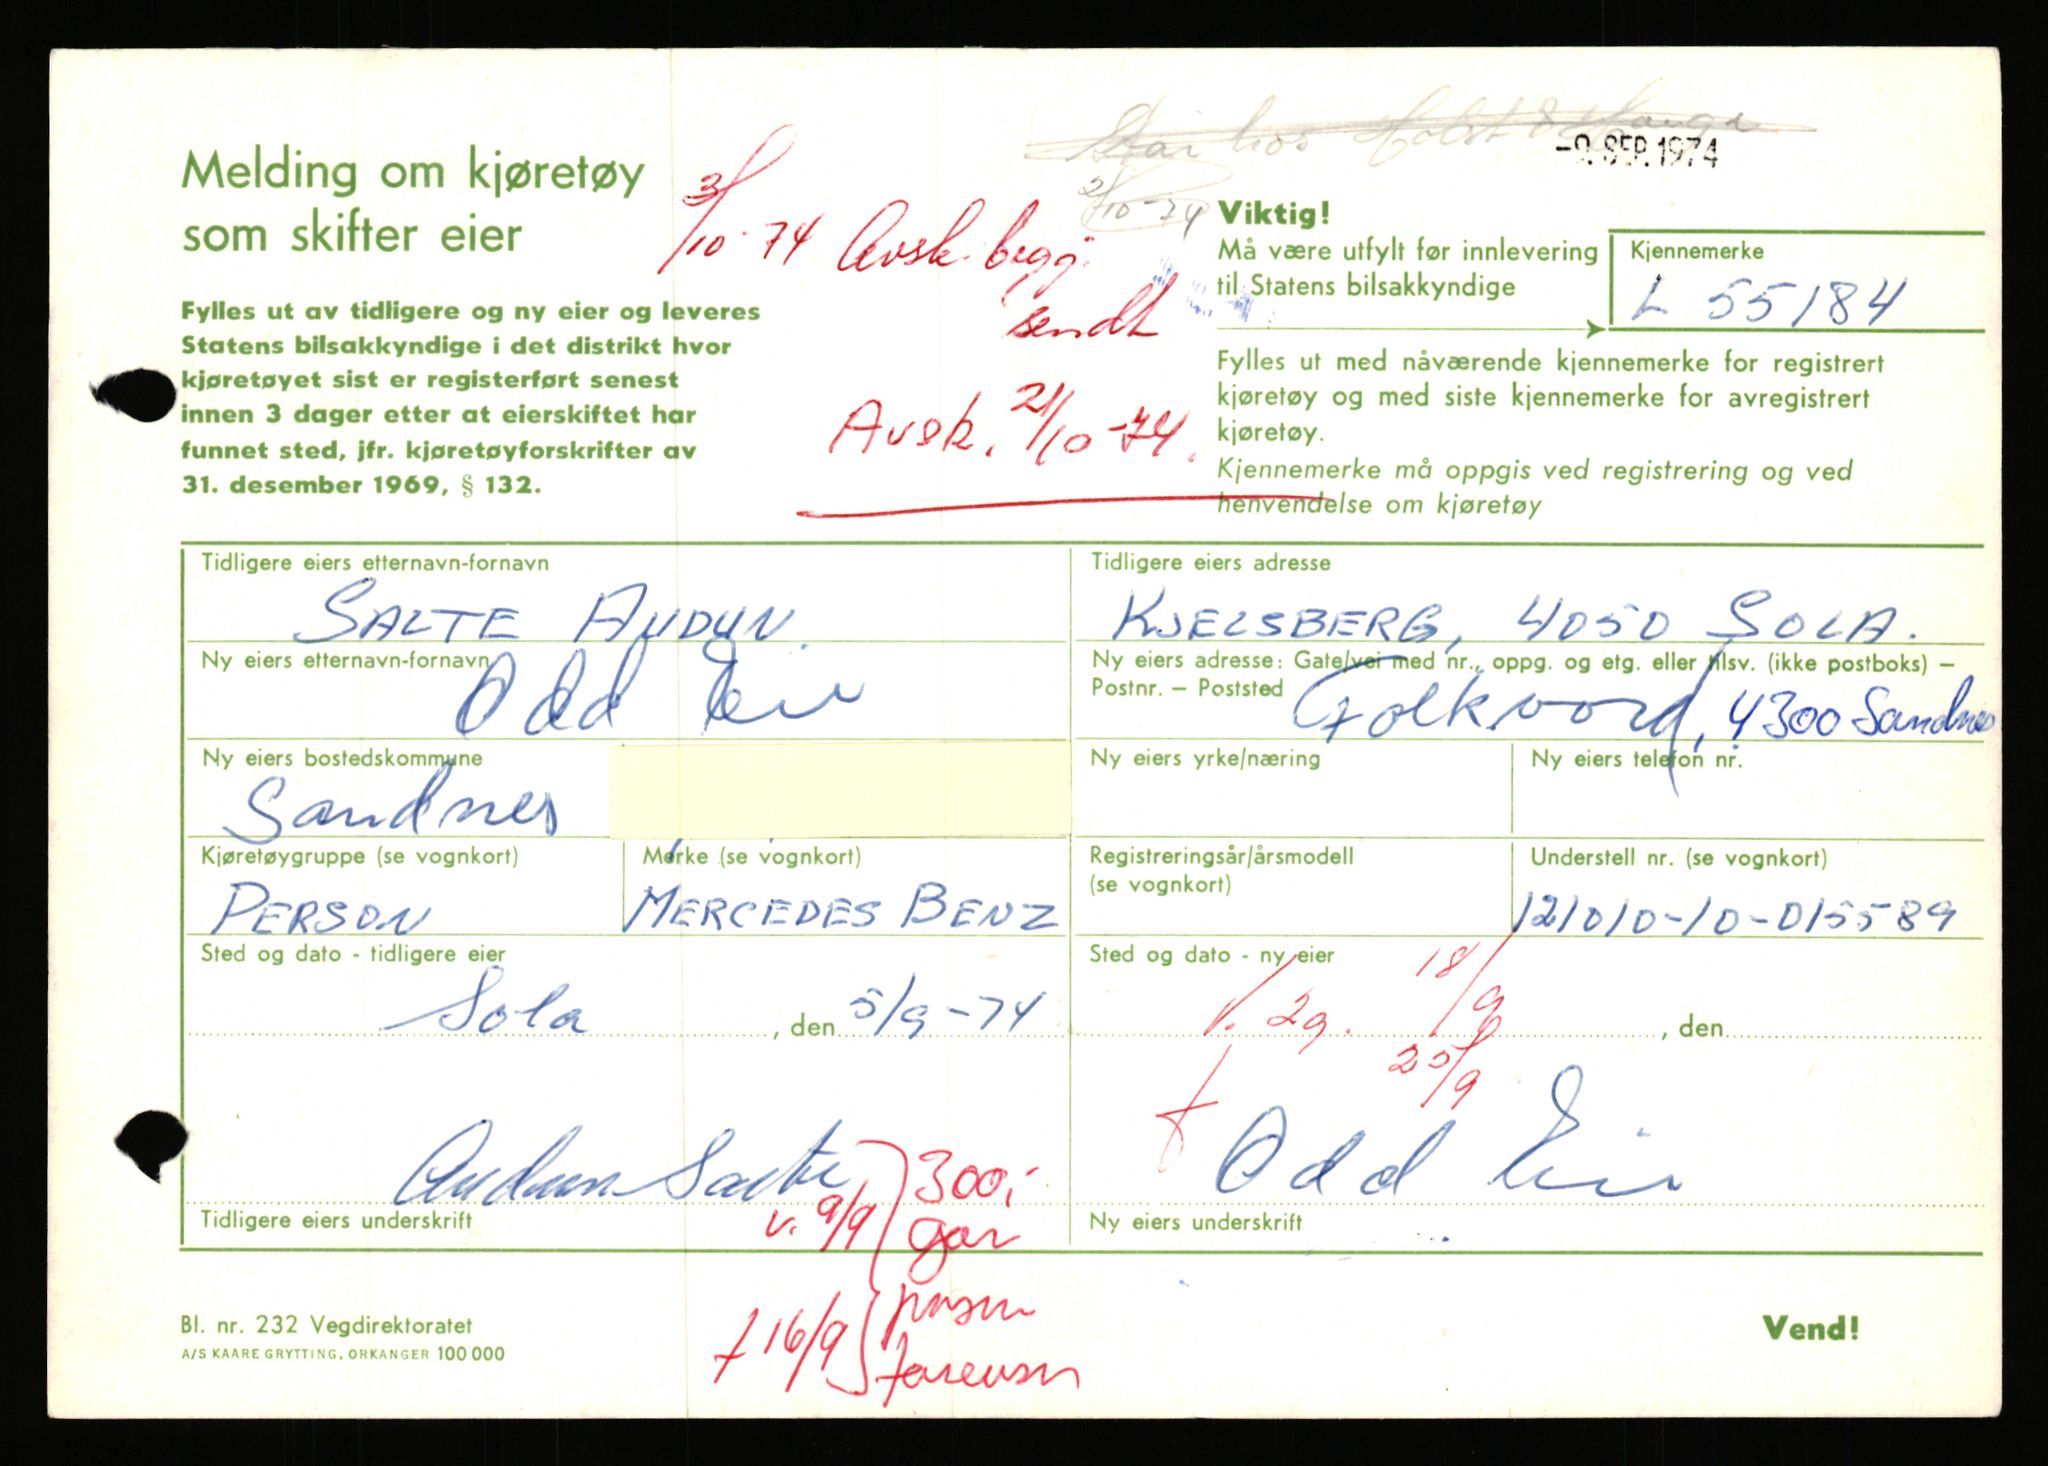 Melding om kjøretøy
som skifter eier
Fylles ut av tidligere og ny eier og leveres
Statens bilsakkyndige i det distrikt hvor
kjøretøyet sist er registerført senest
innen 3 dager etter at eierskiftet har
funnet sted, jfr. kjøretøyforskrifter av
31. desember 1969, § 132.
3/10-74 Avsk. begg.
sendt
Avsk. 21/10-74.
Står hos Holst & Hauga
2/10-74
-9. SEP. 1974
Viktig!
Må være utfylt før innlevering
til Statens bilsakkyndige
Kjennemerke
L 55184
Fylles ut med nåværende kjennemerke for registrert
kjøretøy og med siste kjennemerke for avregistrert
kjøretøy.
Kjennemerke må oppgis ved registrering og ved
henvendelse om kjøretøy
Tidligere eiers etternavn-fornavn
SALTE AUDUN.
Tidligere eiers adresse
KJELSBERG, 4050 SOLA.
Ny eiers etternavn-fornavn
Odd Eie
Ny eiers adresse: Gate/vei med nr., oppg. og etg. eller tilsv. (ikke postboks) –
Postnr. – Poststed
Folkvord, 4300 Sandnes
Ny eiers bostedskommune
Sandnes
Ny eiers yrke/næring
Ny eiers telefon nr.
Kjøretøygruppe (se vognkort)
PERSON
Merke (se vognkort)
MERCEDES BENZ
Registreringsår/årsmodell
(se vognkort)
Understell nr. (se vognkort)
121010-10-015589
Sted og dato - tidligere eier
Sola, den 5/9-74
Sted og dato - ny eier
, den
v. 29. 18/9
f 25/9
Audun Salte
Tidligere eiers underskrift
Odd Eie
Ny eiers underskrift
v. 9/9
300,-
gar
f 16/9
Bl. nr. 232 Vegdirektoratet
A/S KAARE GRYTTING, ORKANGER 100 000
Vend!